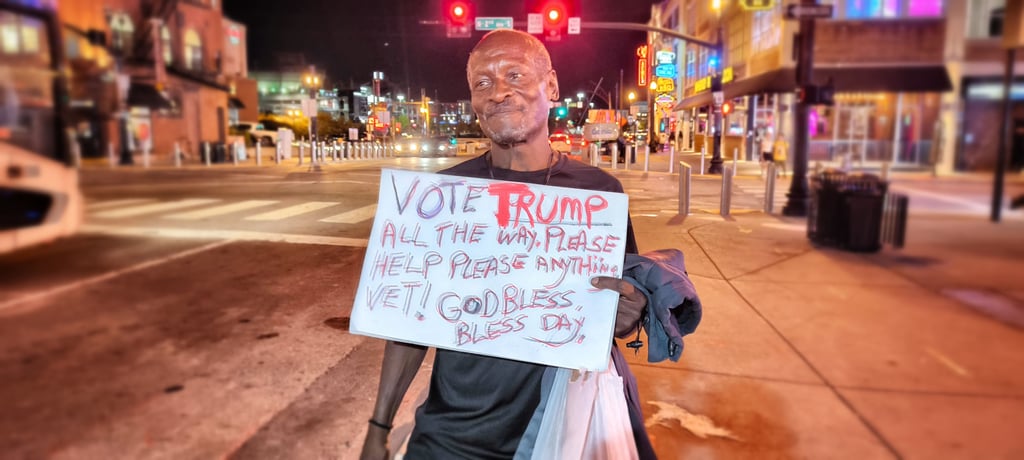 VOTE TRUMP
ALL THE WAY. PLEASE
HELP PLEASE ANYTHING
VET! GOD BLESS.
BLESS DAY.